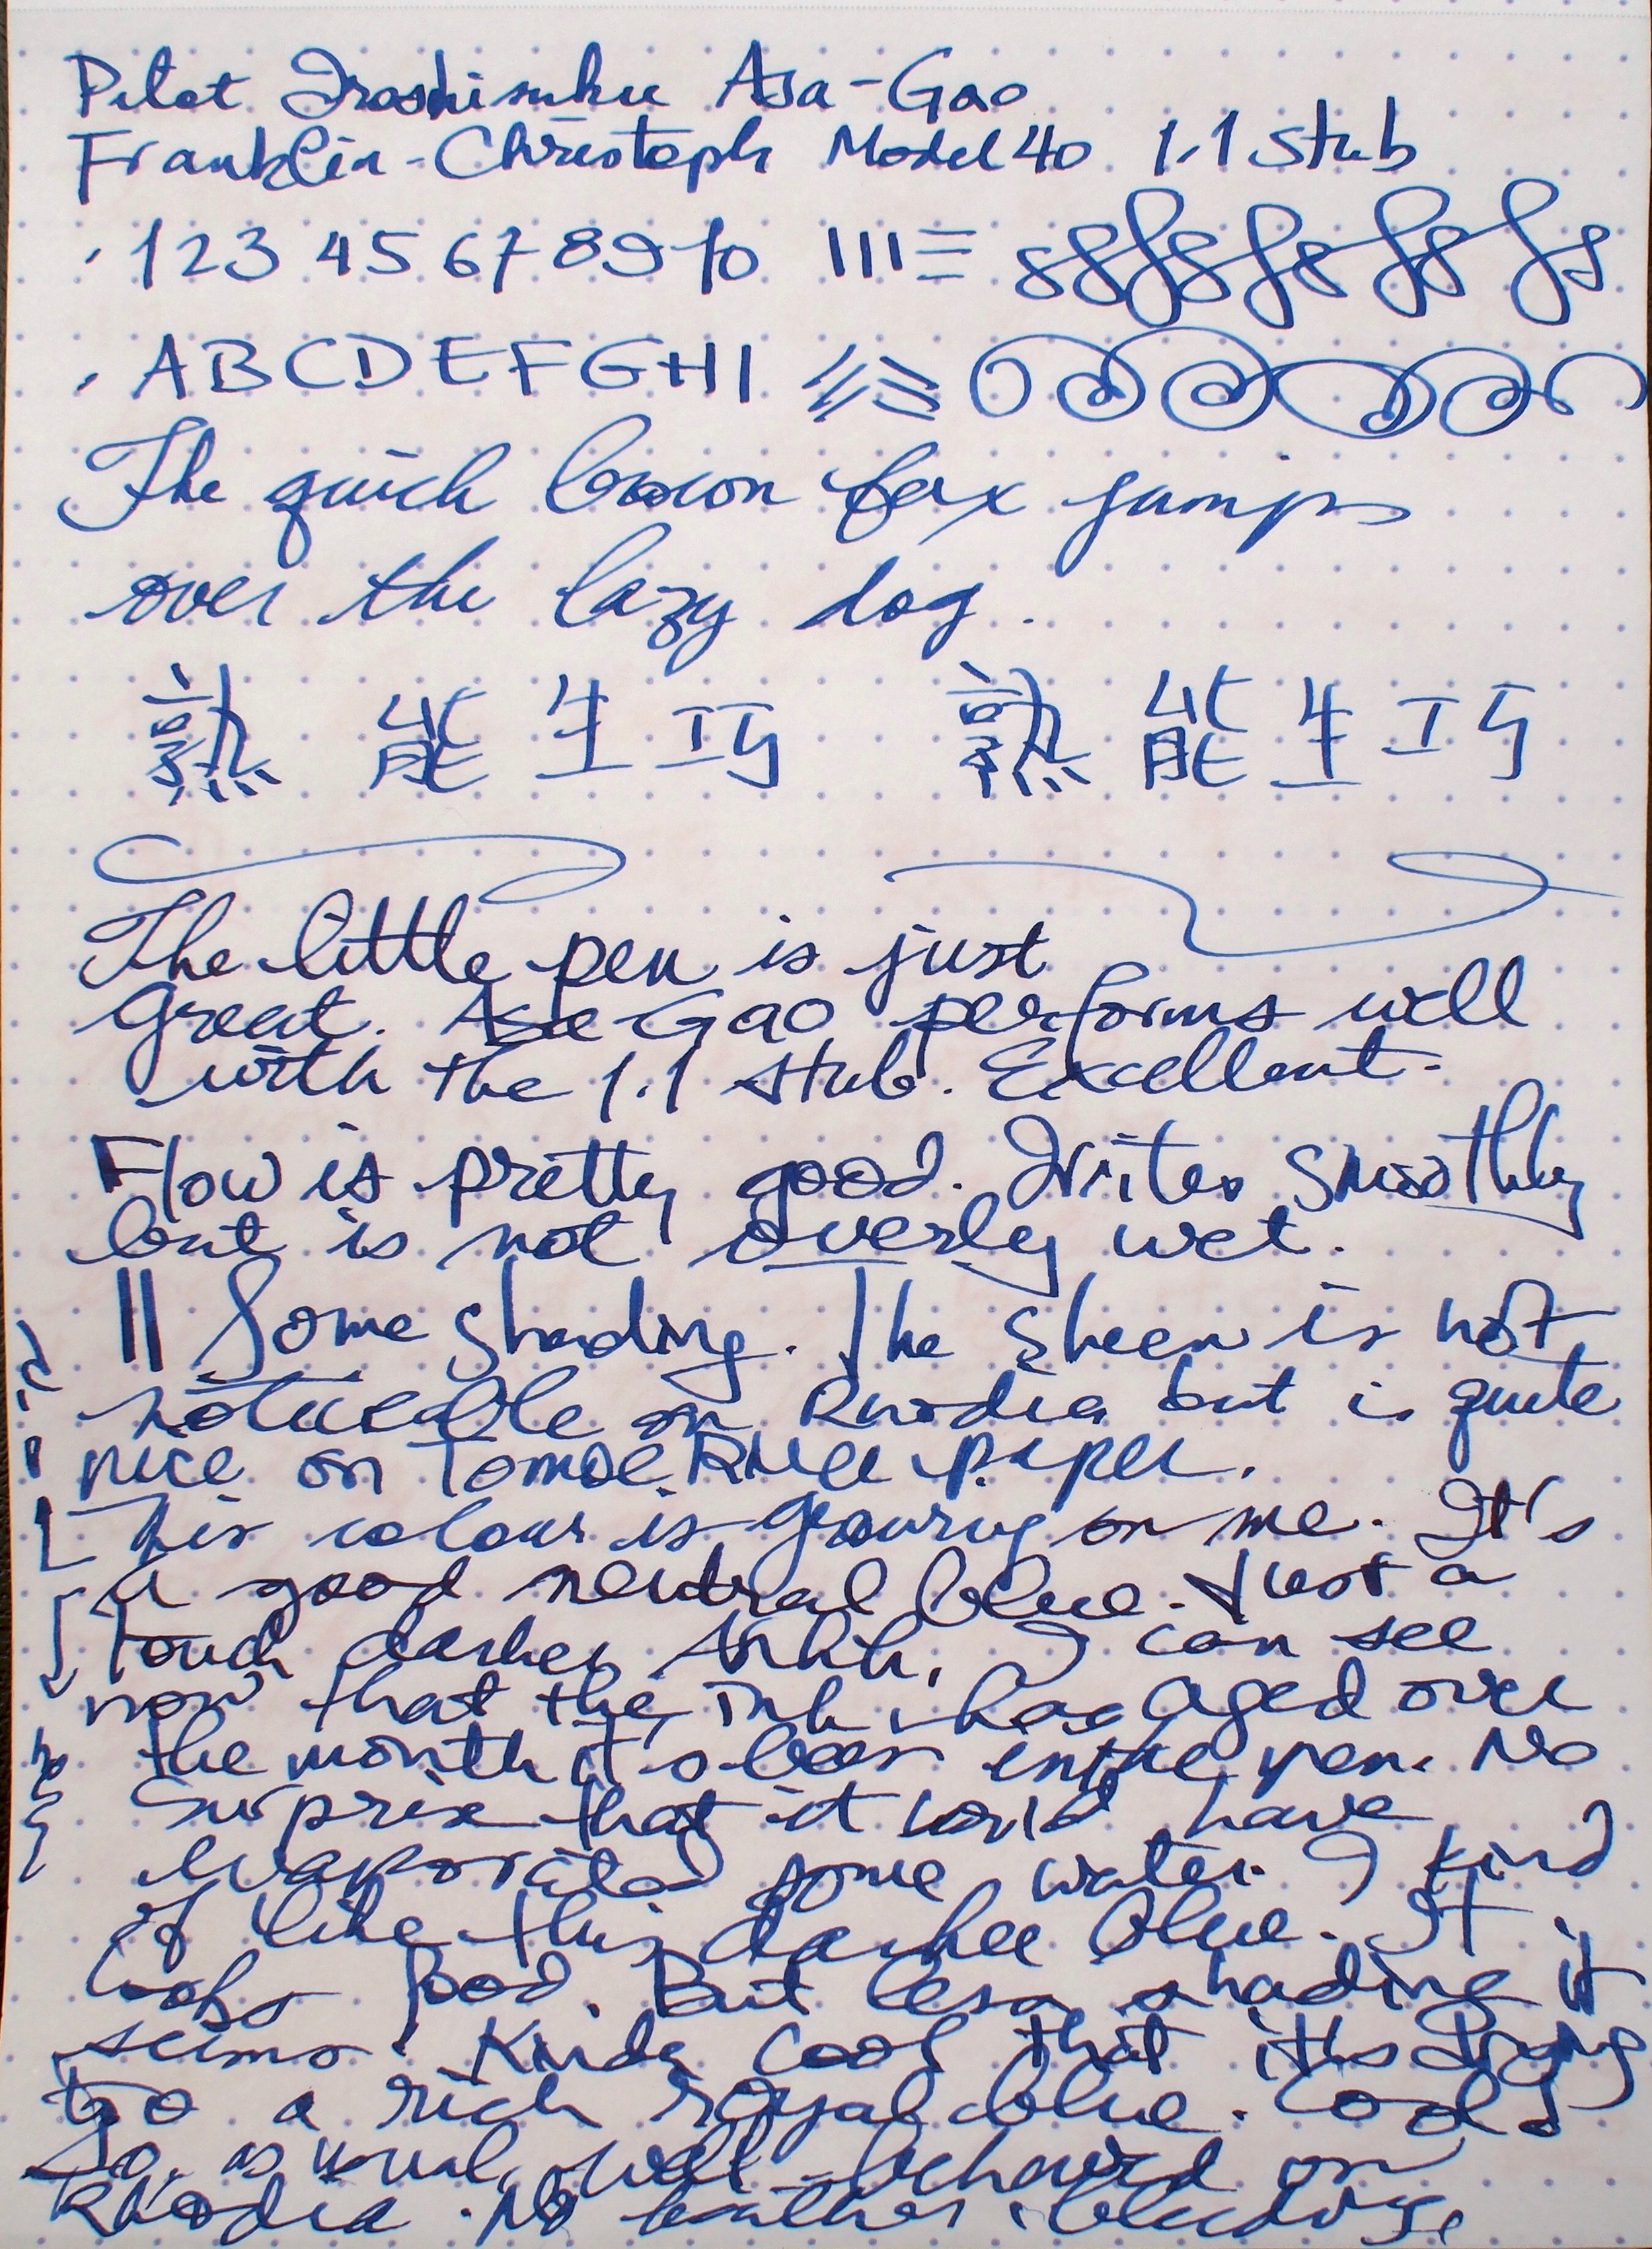 Pilot Iroshizuku Asa-Gao
Franklin-Christoph Model 40 1.1 stub
1 2 3 4 5 6 7 8 9 10
A B C D E F G H I
The quick brown fox jumps
over the lazy dog.
熟能生巧 熟能生巧
The little pen is just
great. Asa-Gao performs well
with the 1.1 stub. Excellent.
Flow is pretty good. Writes smoothly
but is not overly wet.
Some shading. The sheen is not
noticeable on Rhodia but is quite
nice on Tomoe River paper.
This colour is growing on me. It's
a good neutral blue. Just a
touch darker I can see
now that the ink has aged over
the month it's been in the pen. No
surprise that it would have
evaporated some water. I kind
of like this darker blue. It
looks good. But less shading it
seems. Kinda cool that it's drying
to a rich royal blue. Cool!
So, as usual, well-behaved on
Rhodia. No feather, bleeding